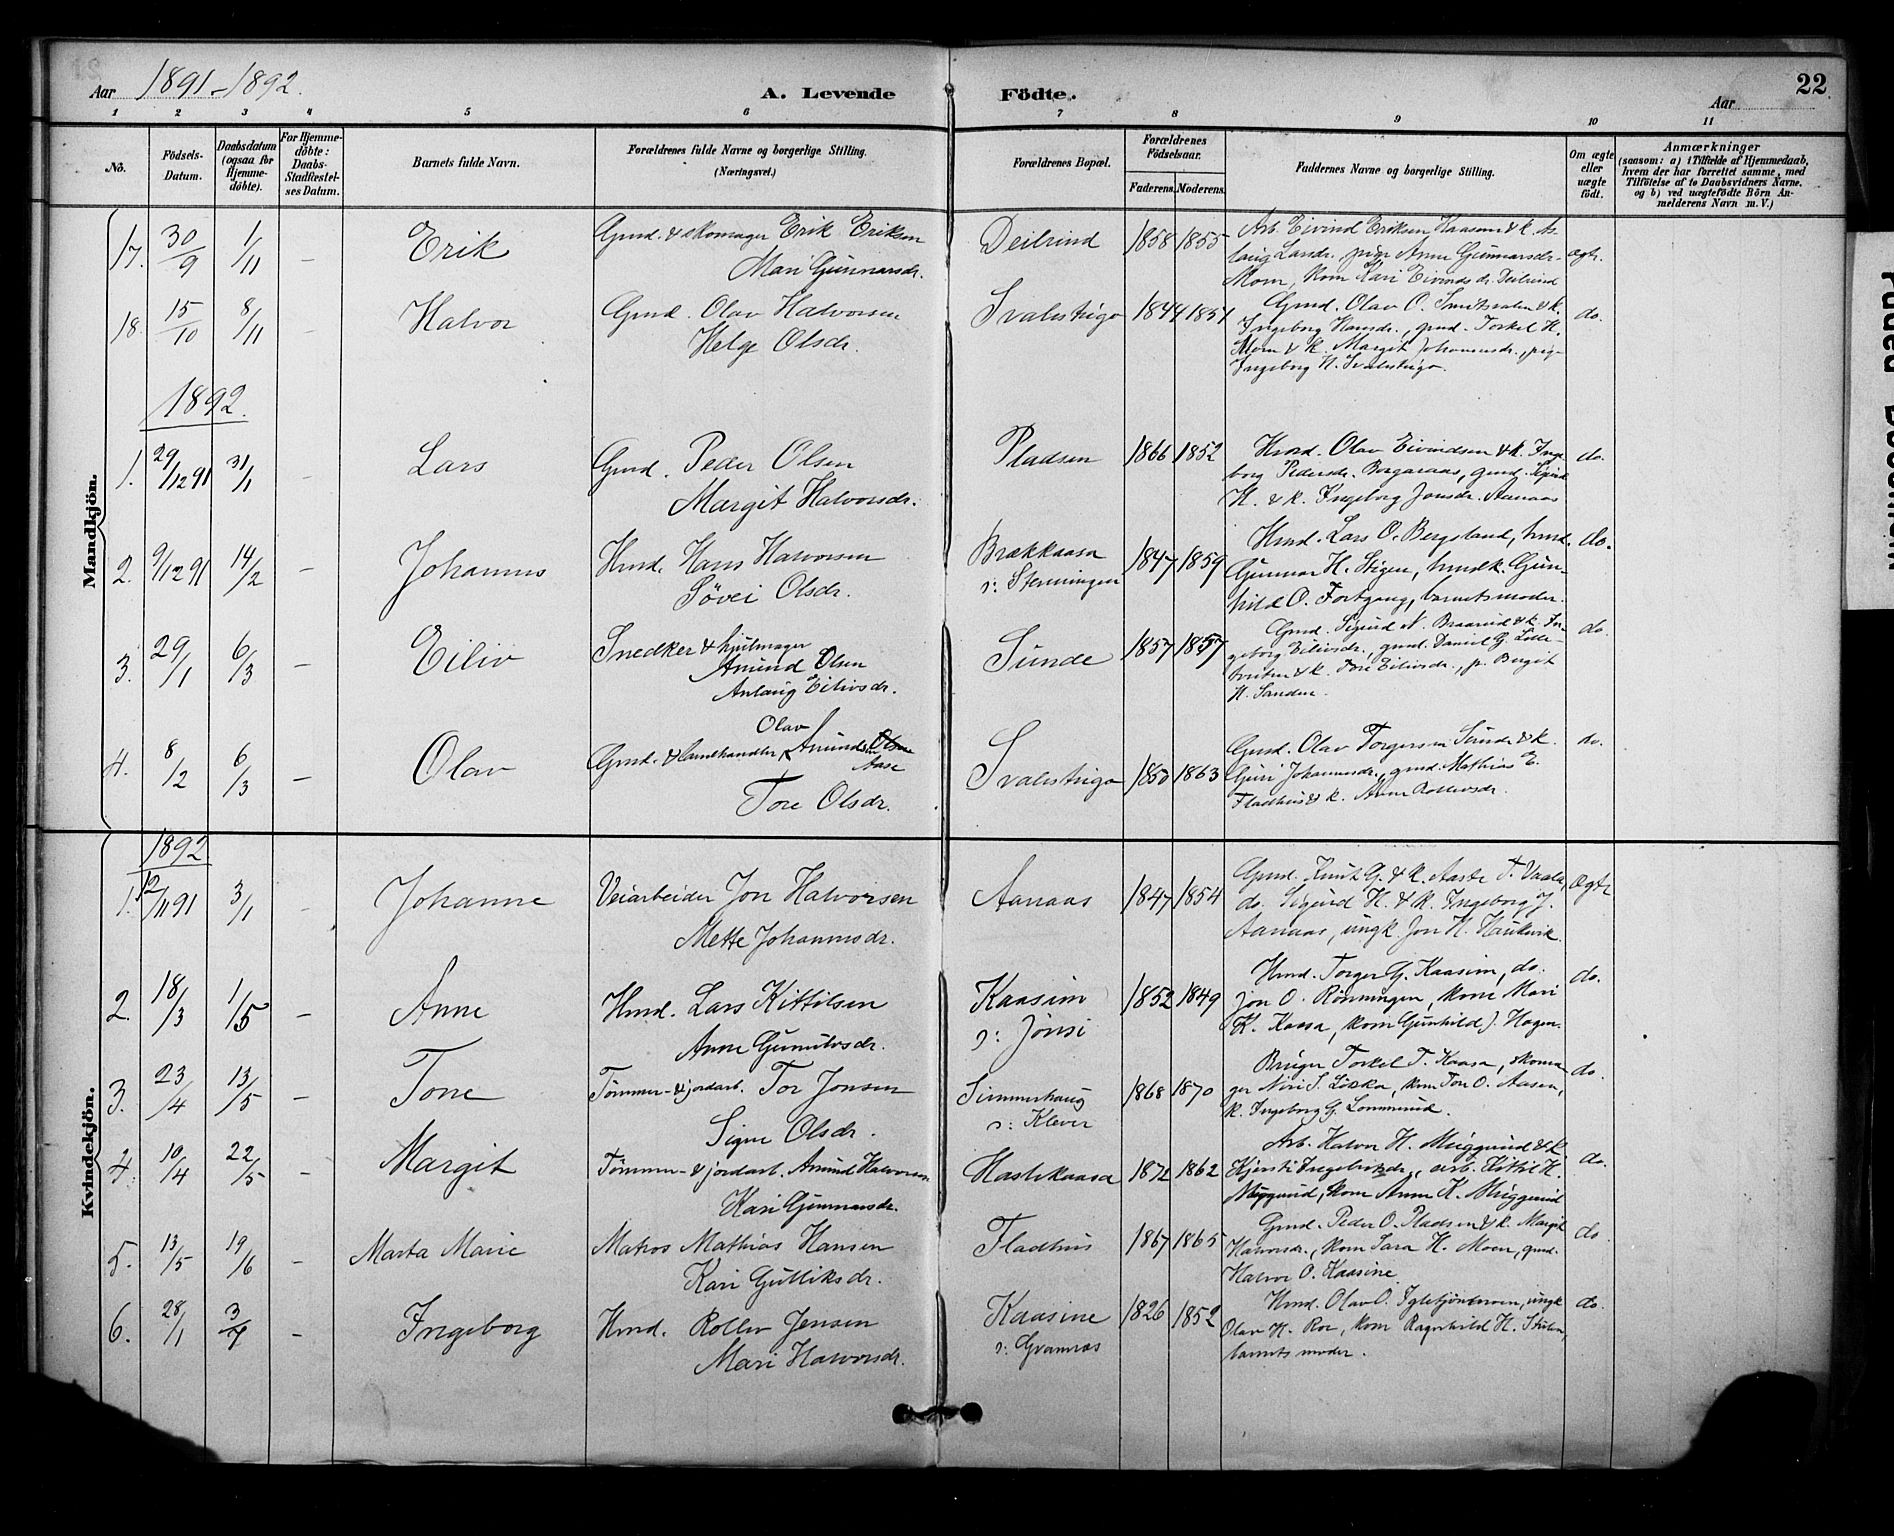 Aar 1891-1892.
A. Levende Födte.
22
Aar
1 2 3 4 5 6 7 8 9 10 11
No.
Födsels-Datum.
Daabsdatum (ogsaa for Hjemme-döbte).
For Hjemme-döbte: Daabs-Stadfæstel-ses Datum.
Barnets fulde Navn.
Forældrenes fulde Navne og borgerlige Stilling. (Næringsvei.)
Forældrenes Bopæl.
Forældrenes Födselsaar.
Faderens. Moderens.
Faddernes Navne og borgerlige Stilling.
Om ægte eller uægte födt.
Anmærkninger
(saasom: a) i Tilfælde af Hjemmedaab,
hvem der har forrettet samme, med
Tilföielse af to Daabsvidners Navne.
og b) ved uægtefödte Börn An-
melderens Navn m. V.)
Mandkjön.
17. 30/9 1/11 – Erik Gmd. & skomager Erik Eriksen Deilrind 1858 1855 Arb. Eivind Eriksen Kaasene & k. As-
Mari Gunnarsdr. laug Larsdr., pige Anne Gunnarsdr. ægte.
Moen, kom Kari Eivindsdr. Deilrind
18. 15/10 8/11 – Halvor Gmd. Olav Halvorsen Svalestuga 1844 1851 Gmd. Olav O. & k. do.
Helge Olsdr. Ingeborg Hansdr., gmd. Torkel H.
Moen & k. Margit Johannesdr., pige
Ingeborg H. Svalestuga.
1892.
1. 29/12 91 31/1 – Lars Gmd. Peder Olsen Pladsen 1866 1852 Hmd. Olav Eivindsen & k. Inge- do.
Margit Halvorsdr. borg Pedersdr. Borgaraas, gmd. Sigurd
H. & k. Ingeborg Jonsdr. Aanaas
2. 9/12 91 14/2 – Johannes Hmd. Hans Halvorsen Brækkaasa 1847 1859 Hmd. Lars O. Bergsland, hmd. do.
Søvei Olsdr. s: Gunnar H. Stigen, hmdk. Gun-
hild O. Fortgang, barnets moder.
3. 29/1 6/3 – Eiliv Snedker & hjulmager Sunde 1857 1857 Gmd. Sigurd N. Braarud & k. In- do.
Amund Olsen geborg Eilivsdr., gmd. Daniel G.
Anlaug Eilivsdr. & k. Tore Eilivsdr., p. Birgit
H. Sanden.
4. 8/2 6/3 – Olav Gmd. & Olav Amundsen Aase Svalestuga 1850 1863 Gmd. Olav Torgersen Sunde & k. do.
Tore Olsdr. Guri Johannesdr., gmd. Mathias E.
Fladhus & k. Anne Rollevsdr.
Kvindekjön.
1892
1. 12/11 91 3/1 – Johanne Veiarbeider Jon Halvorsen Aanaas 1847 1854 Gmd. Knut G. & k. Aaste T. Vaala, Ægte
Mette Johannesdr. do. Sigurd H. & k. Ingeborg J.
Aanaas, ungk. Jon H. Haukvik.
2. 18/3 1/5 – Anne Hmd. Lars Kittilsen Kaasine 1852 1849 Hmd. Torger G. Kaasine, do. do.
Anne s: Jønsi Jon O. Rønningen, kone Mari
K. Kaasa, kom Gunhild J. Hagen.
3. 23/4 13/5 – Tone Tømmer- & jordarb. Tor Jonsen Simmerhaug 1868 1870 Bruger Torkel T. Kaasa, skoma- do.
Signe Olsdr. s: Klever ger Niri S. Liska, kom Ton O. Aasen,
k. Ingeborg G. Lonnmund.
4. 10/4 22/5 – Margit Tømmer- & jordarb. Amund Halvorsen Haslekaasa 1872 1862 Arb. Halvor H. Miggund & k. do.
Kari Gunnarsdr. Kjersti Ingebritsdr., arb. Kittil H.
Miggund, kom Anne K. Miggund
5. 13/5 19/6 – Marta Marie Matros Mathias Hansen Fladhus 1867 1865 Gmd. Peder O. Pladsen & k. Margit do.
Kari Gulliksdr. Halvorsdr., kom Sara H. Moen, gmd.
Halvor O. Kaasine.
6. 28/1 3/7 – Ingeborg Hmd. Rollev Jensen Kaasine 1826 1852 Hmd. Olav O. Igletjønmoen, ungk. do.
Mari Halvorsdr. s: Grannæs Olav H. Roe, kom Ragnhild H.
barnets moder.